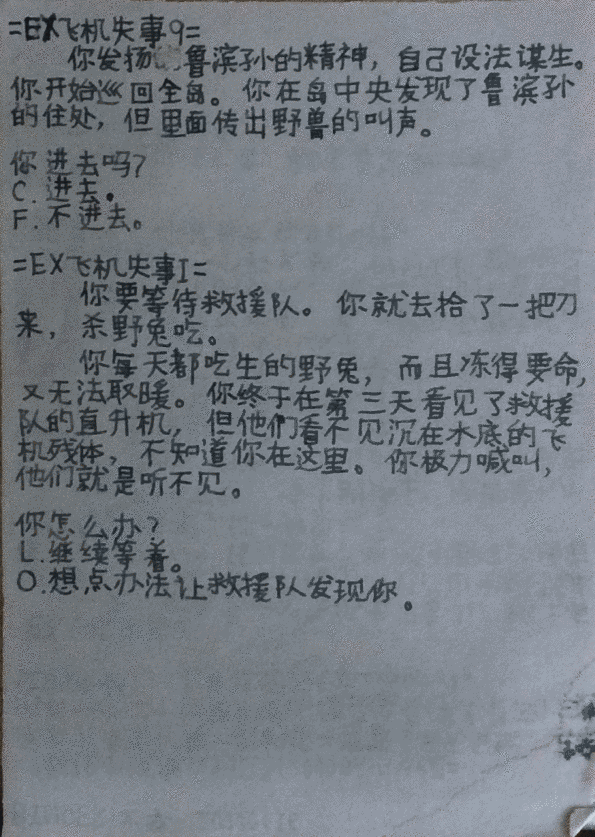 =EX飞机失事9=
你发扬鲁滨孙的精神，自己设法谋生。
你开始巡回全岛。你在岛中央发现了鲁滨孙
的住处，但里面传出野兽的叫声。
你进去吗？
C.进去。
F.不进去。
=EX飞机失事I=
你要等待救援队。你就去拾了一把刀
来，杀野兔吃。
你每天都吃生的野兔，而且冻得要命，
又无法取暖。你终于在第三天看见了救援
队的直升机，但他们看不见沉在水底的飞
机残体，不知道你在这里。你极力喊叫，
他们就是听不见。
你怎么办？
L.继续等着。
O.想点办法让救援队发现你。